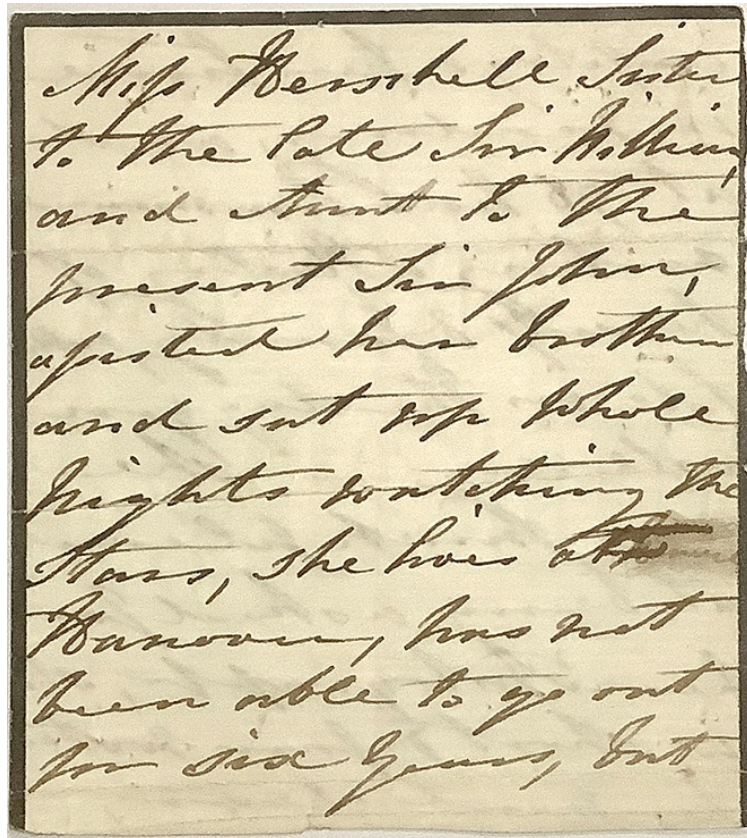 Miss Herschell Sister
to the late Sir William,
and Aunt to the
present Sir John,
assisted her brother
and sat up whole
Nights watching the
Stars, she lives at
Hanover, has not
been able to go out
for six Years, but